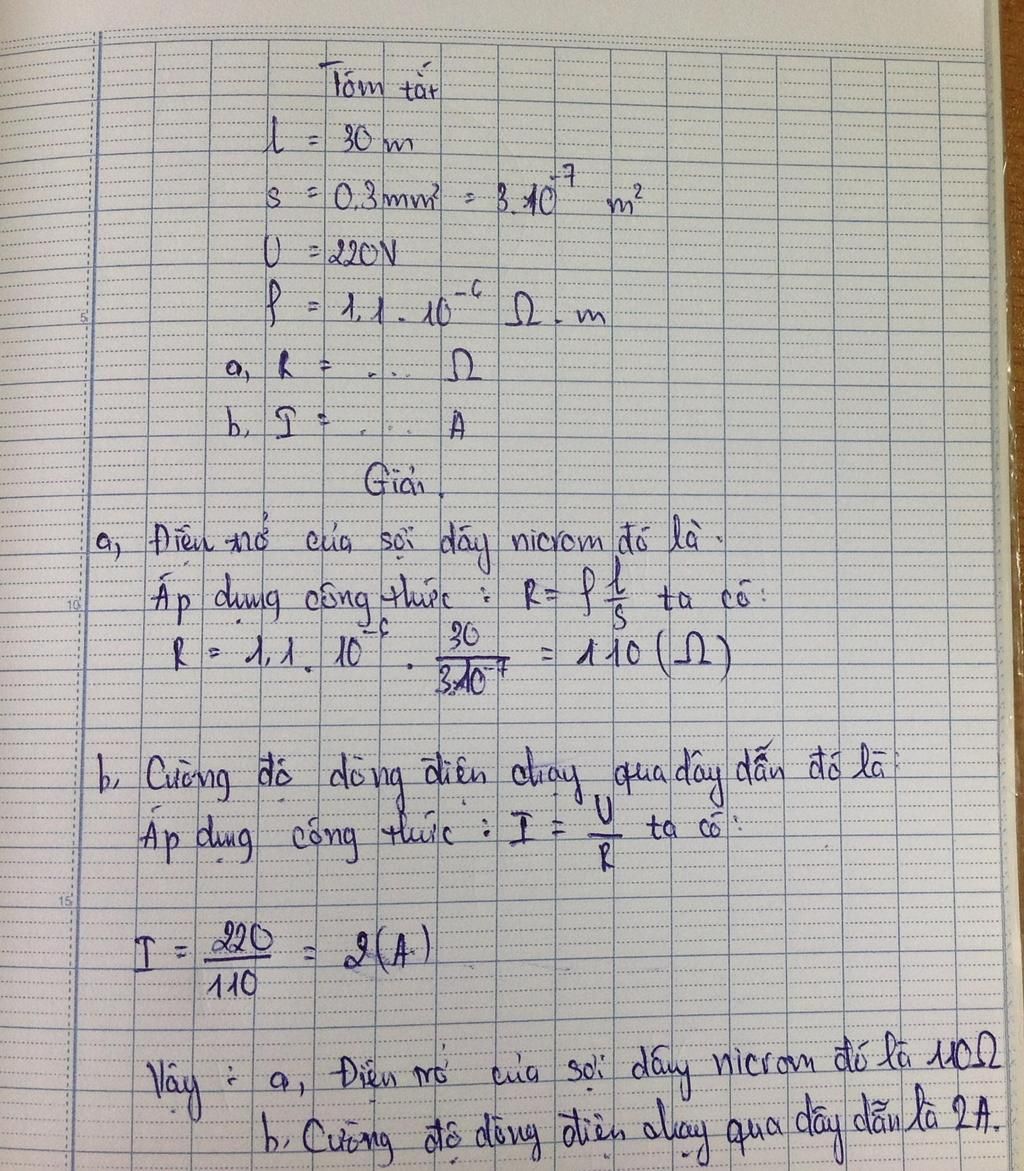 Tóm tắt
l = 30 m
s = 0.3mm² = 3.10⁻⁷ m²
U = 220V
ρ = 1,1 . 10⁻⁶ Ω . m
5
a, R = .... Ω
b, I = .... A
Giải.
a, Điện trở của sợi dây nicrom đó là.
10
Áp dụng công thức : R = ρ l/s ta có:
R = 1,1 . 10⁻⁶ . 30/3.10⁻⁷ = 110 (Ω)
b, Cường độ dòng điện chạy qua dây dẫn đó là:
Áp dụng công thức : I = U/R ta có:
15
I = 220/110 = 2(A)
Vậy : a, Điện trở của sợi dây nicrom đó là 110Ω
b, Cường độ dòng điện chạy qua dây dẫn là 2A.